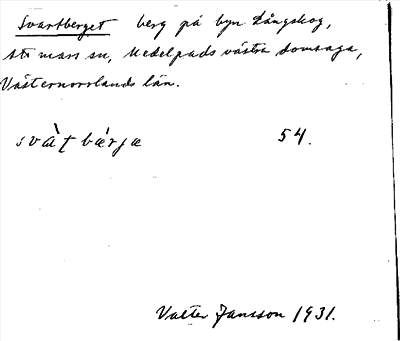 Svartberget berg på byn Långskog,
Stö man sn, Medelpads västra domsaga,
Västernorrlands län.
svàṭbærjæ 54.
Valter Jansson 1931.